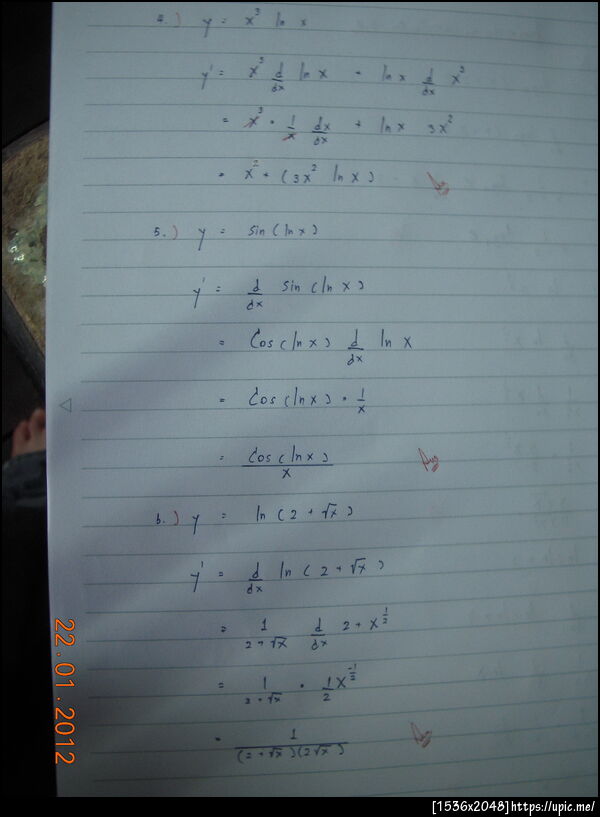 4.) y = x³ ln x
y' = x³ d/dx ln x + ln x d/dx x³
= x³ • 1/x dx/dx + ln x 3x²
= x² + (3x² ln x) Ans
5.) y = sin(ln x)
y' = d/dx sin(ln x)
= Cos(ln x) d/dx ln x
= Cos(ln x) • 1/x
= Cos(ln x)/x Ans
6.) y = ln(2+√x)
y' = d/dx ln(2+√x)
= 1/2+√x d/dx 2+x^1/2
= 1/2+√x • 1/2 x^-1/2
= 1/(2+√x)(2√x) Ans
22.01.2012
[1536x2048]https://upic.me/